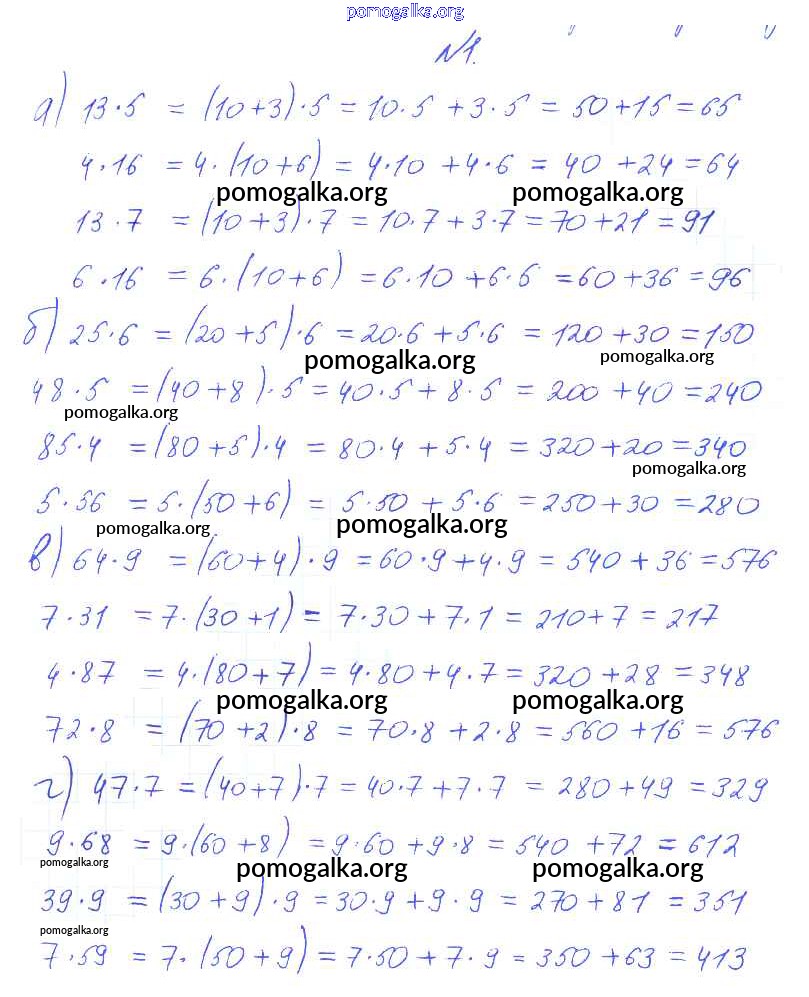 pomogalka.org
№1.
а) 13·5 = (10+3)·5 = 10·5 + 3·5 = 50+15 = 65
4·16 = 4·(10+6) = 4·10 + 4·6 = 40 +24 = 64
pomogalka.org pomogalka.org
13·7 = (10+3)·7 = 10·7 + 3·7 = 70 +21 = 91
6·16 = 6·(10+6) = 6·10 + 6·6 = 60+36 = 96
б) 25·6 = (20+5)·6 = 20·6 + 5·6 = 120+30 = 150
pomogalka.org pomogalka.org
48·5 = (40+8)·5 = 40·5 + 8·5 = 200 +40 = 240
pomogalka.org
85·4 = (80+5)·4 = 80·4 + 5·4 = 320+20 = 340
pomogalka.org
5·56 = 5·(50+6) = 5·50 + 5·6 = 250+30 = 280
pomogalka.org pomogalka.org
в) 64·9 = (60+4)·9 = 60·9 + 4·9 = 540 + 36 = 576
7·31 = 7·(30+1) = 7·30 + 7·1 = 210+7 = 217
4·87 = 4·(80+7) = 4·80 + 4·7 = 320 +28 = 348
pomogalka.org pomogalka.org
72·8 = (70+2)·8 = 70·8 + 2·8 = 560 +16 = 576
г) 47·7 = (40+7)·7 = 40·7 + 7·7 = 280 +49 = 329
9·68 = 9·(60+8) = 9·60 + 9·8 = 540 +72 = 612
pomogalka.org pomogalka.org pomogalka.org
39·9 = (30+9)·9 = 30·9 + 9·9 = 270+81 = 351
pomogalka.org
7·59 = 7·(50+9) = 7·50 + 7·9 = 350 +63 = 413